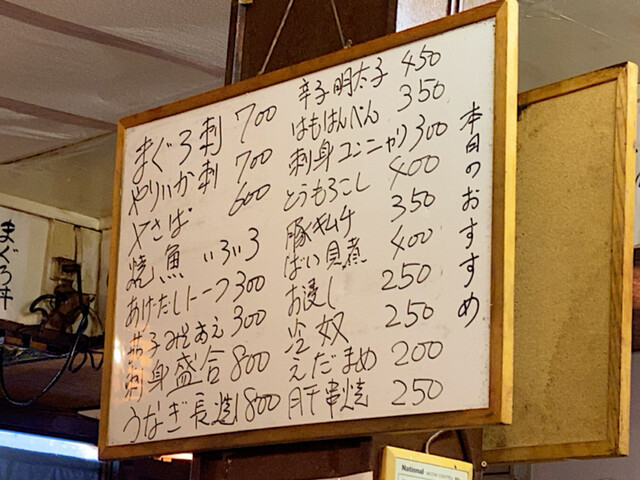 本日のおすすめ
辛子明太子 450
はもはんぺん 350
刺身コンニャク 300
とうもろこし 400
豚キムチ 350
ばい貝煮 400
お浸し 250
冷奴 250
えだまめ 200
肝串焼 250
まぐろ刺 700
やりいか刺 700
〆さば 600
焼魚 いろいろ
あげだしトーフ 300
みそあえ 300
刺身盛合 800
うなぎ長焼 1800
まぐろ丼
National